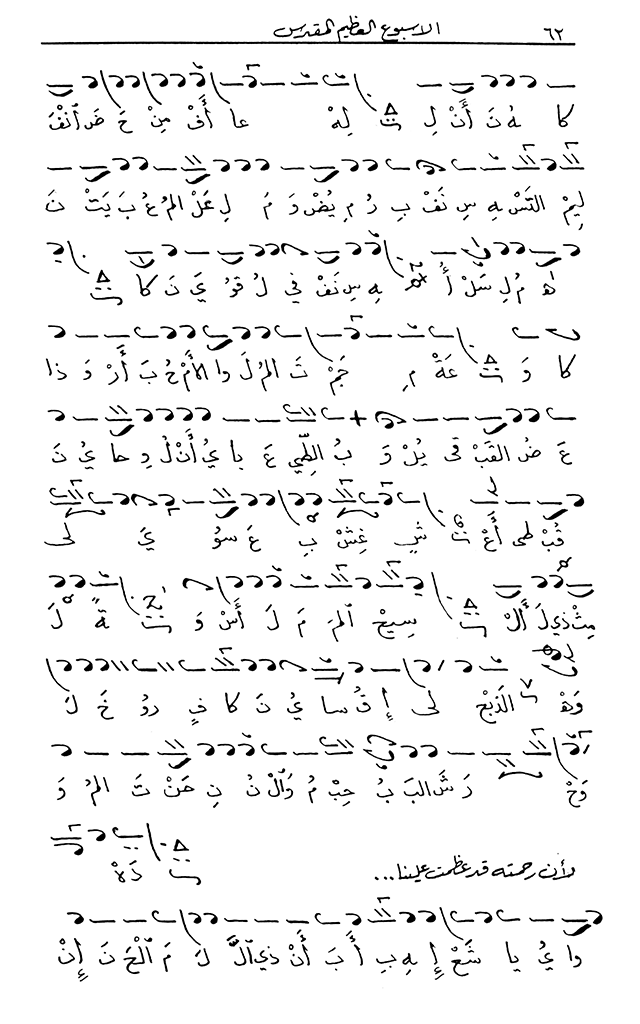 ٦٢ الاسبوع العظيم المقدس
كا هُ نَ أَنْ لِ لِهْ عا أَفْ مِنْ حَ ضَ
لِيمْ التَسْ هِ سِ نَفْ بِ رُ مِ يُضْ وَ مَ لِ عَلْ المُ عُ بَ يَتْ نَ
هُ مُ لِ سَلْ أَ هِ سِ نَفْ في لُ قو يَ نَ كا
كا وَ عَةْ مِ جَمْ تَ المُ لَ وا الأَمْ حُ بَ أَرْ وَ ذا
عَ ضُ القَبْ قى يُلْ وَ بُ الطِّي عَ با يُ أَنْ لُ وِ حا يُ نَ
قُبْ طى أَعْ شٍ غِشْ بِ عَ سو يَ لى
مِثْ ذي لَ أَلْ سيحْ المَ مَ لَ أَسْ وَ ةً لَ
وَهْ الذَبْحْ لى إِ قُ سا يُ نَ كا فٍ رو خَ لَ
وَحْ رَ شَ البَ بُ حِبْ مُ وَالْ نُ نِ حَنْ تَ المُ وَ
لأن رحمته قد عظمت علينا...
دَهْ
وا يُ يا شَعْ إِ هِ بِ أَ بَ أَنْ ذي لَ مَ الْحَ نَ إِنْ